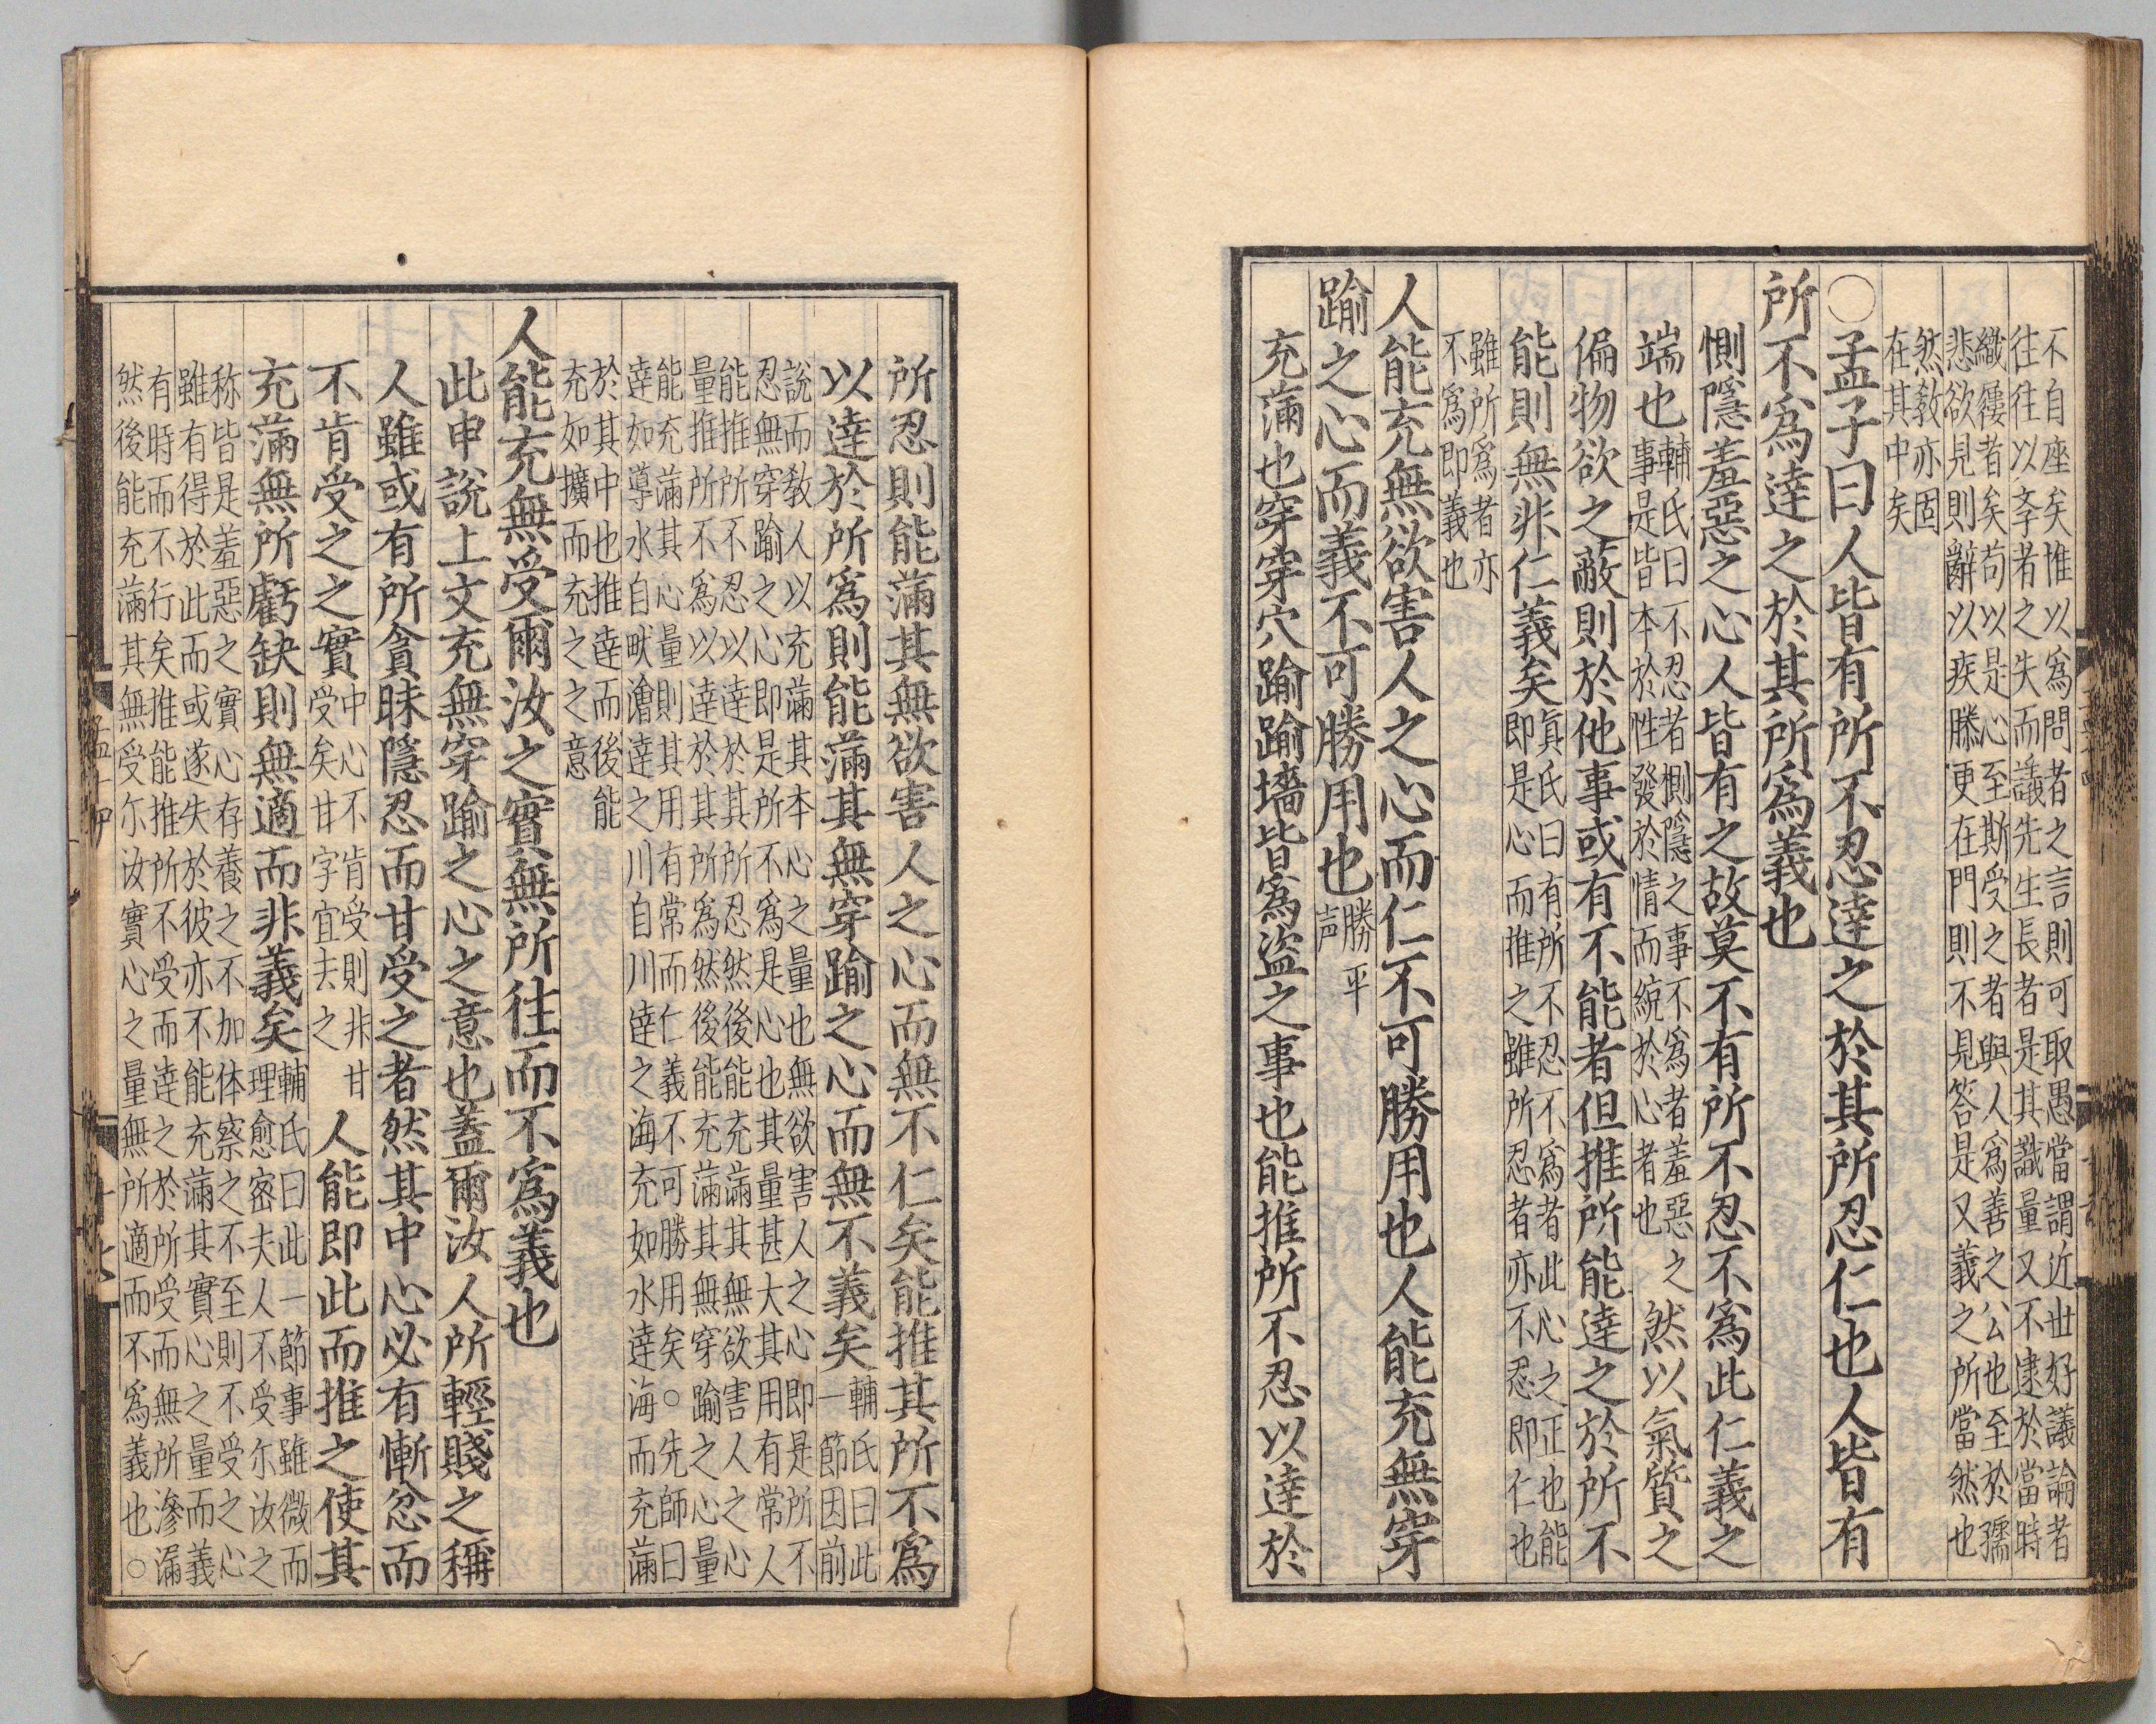 不自座矣惟以爲問者之言則可取愚當謂近世好議論者
往往以李者之失而議先生長者是其識量又不逮於當時
織屨者矣苟以是心至斯受之者與人爲善之公也至於孺
悲欲見則辭以疾滕更在門則不見答是又義之所當然也
然敎亦固
在其中矣
○孟子曰人皆有所不忍達之於其所忍仁也人皆有
所不爲達之於其所爲義也
惻隱羞惡之心人皆有之故莫不有所不忍不爲此仁義之
端也
輔氏曰不忍者惻隱之事不爲者羞惡之
事是皆本於性發於情而綂於心者也
然以氣質之
偏物欲之蔽則於他事或有不能者但推所能達之於所不
能則無非仁義矣
眞氏曰有所不忍不爲者此心之正也能
即是心而推之雖所忍者亦不忍即仁也
雖所爲者亦
不爲即義也
人能充無欲害人之心而仁不可勝用也人能充無穿
踰之心而義不可勝用也
勝平
声
充滿也穿穿穴踰踰墻皆爲盜之事也能推所不忍以達於
所忍則能滿其無欲害人之心而無不仁矣能推其所不爲
以達於所爲則能滿其無穿踰之心而無不義矣
輔氏曰此
一節因前
說而敎人以充滿其本心之量也無欲害人之心即是所不
忍無穿踰之心即是所不爲是心也其量甚大其用有常人
能推所不忍以達於其所忍然後能充滿其無欲害人之心
量推所不爲以達於其所爲然後能充滿其無穿踰之心量
能充滿其心量則其用有常而仁義不可勝用矣○先師曰
達如導水自畎澮達之川自川達之海充如水達海而充滿
於其中也推達而後能
充如擴而充之之意
人能充無受爾汝之實無所往而不爲義也
此申說上文充無穿踰之心之意也蓋爾汝人所輕賤之稱
人雖或有所貪昧隱忍而甘受之者然其中心必有慚忿而
不肯受之之實
中心不肯受則非甘
受矣甘字宜去之
人能即此而推之使其
充滿無所虧缺則無適而非義矣
輔氏曰此一節事雖微而
理愈密夫人不受尔汝之
称皆是羞惡之實心存養之不加体察之不至則不受之心
雖有得於此而或遂失於彼亦不能充滿其實心之量而義
有時而不行矣推能推所不受而達之於所受而無所滲漏
然後能充滿其無受尔汝實心之量無所適而不爲義也○